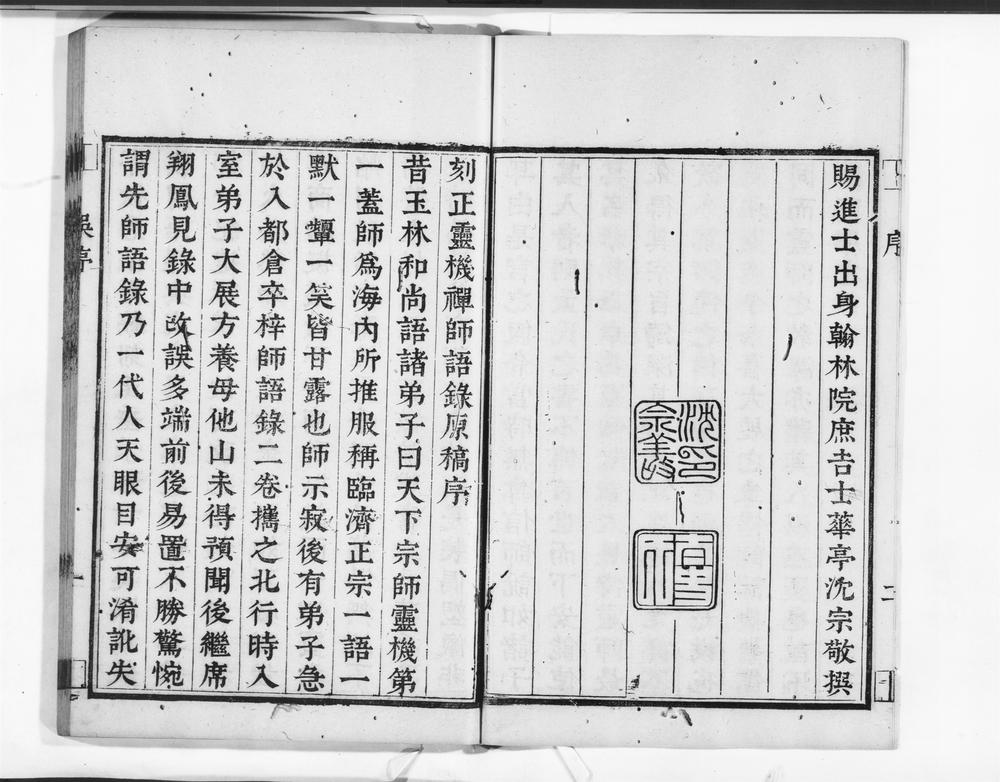 序
二
賜進士出身翰林院庶吉士華亭沈宗敬撰
刻正靈機禪師語錄原稿序
昔玉林和尚語諸弟子曰天下宗師靈機第
一蓋師爲海內所推服稱臨濟正宗 語一
默一顰一笑皆甘露也師示寂後有弟子急
於入都倉卒梓師語錄二卷攜之北行時入
室弟子大展方養母他山未得預聞後繼席
翔鳳見錄中改誤多端前後易置不勝驚惋
謂先師語錄乃一代人天眼目安可淆訛失